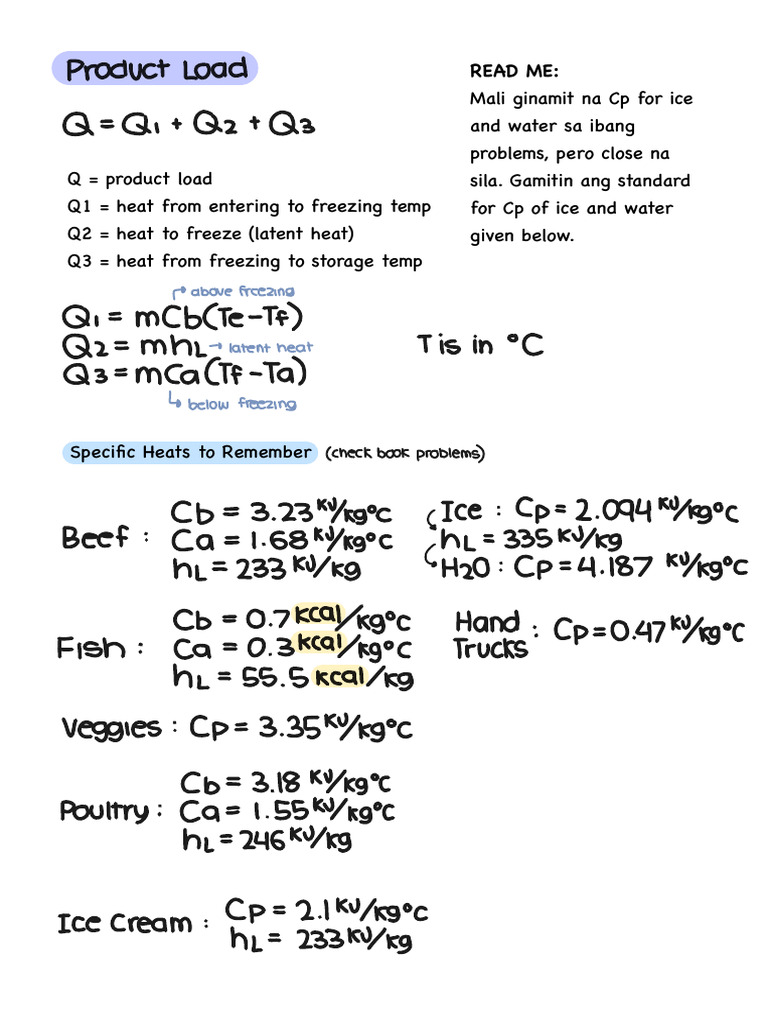 Product Load
Q = Q1 + Q2 + Q3
Q = product load
Q1 = heat from entering to freezing temp
Q2 = heat to freeze (latent heat)
Q3 = heat from freezing to storage temp
READ ME:
Mali ginamit na Cp for ice
and water sa ibang
problems, pero close na
sila. Gamitin ang standard
for Cp of ice and water
given below.
above freezing
Q1 = mCb(Te-Tf)
Q2 = mhL → latent heat
Q3 = mCa(Tf-Ta)
below freezing
T is in °C
Specific Heats to Remember (check book problems)
Beef :
Cb = 3.23 KJ/kg°C
Ca = 1.68 KJ/kg°C
hL = 233 KJ/kg
Ice : Cp = 2.094 KJ/kg°C
hL = 335 KJ/kg
H2O : Cp = 4.187 KJ/kg°C
Fish :
Cb = 0.7 kcal/kg°C
Ca = 0.3 kcal/kg°C
hL = 55.5 kcal/kg
Hand
Trucks : Cp = 0.47 KJ/kg°C
Veggies : Cp = 3.35 KJ/kg°C
Poultry :
Cb = 3.18 KJ/kg°C
Ca = 1.55 KJ/kg°C
hL = 246 KJ/kg
Ice Cream :
Cp = 2.1 KJ/kg°C
hL = 233 KJ/kg